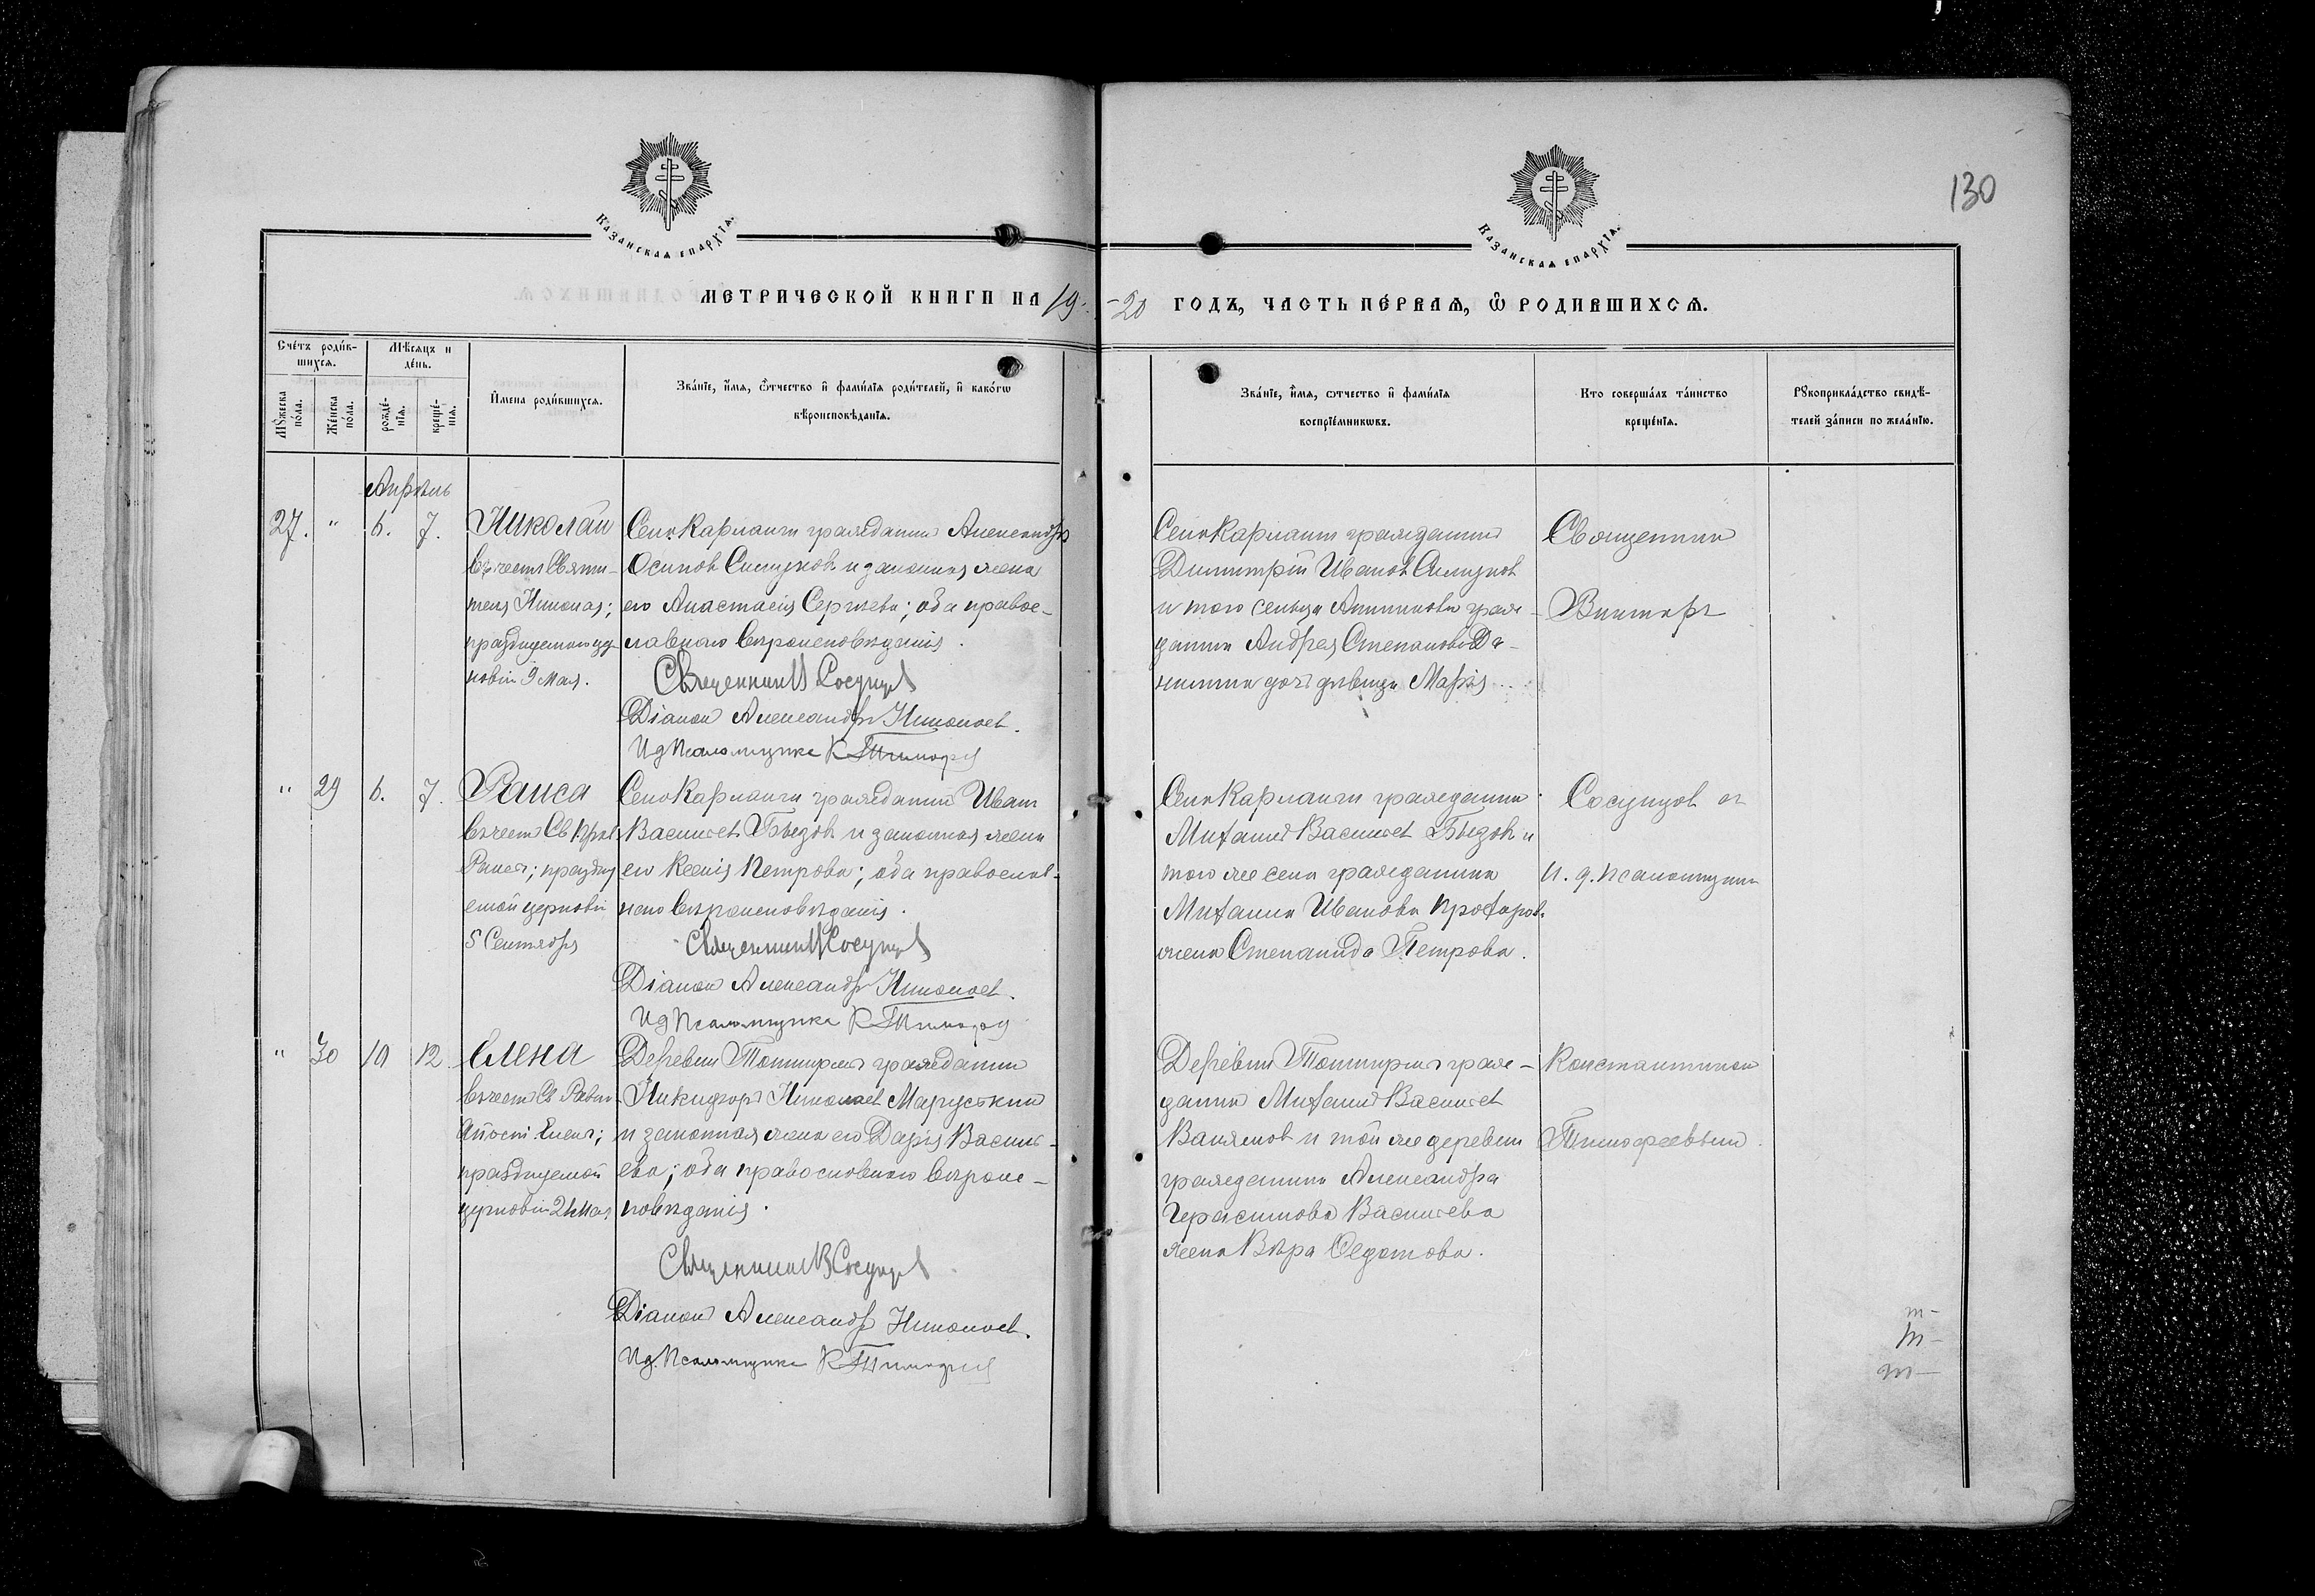 130
Казанская епархїа.
Казанская епархїа.
МЕТРИЧЕСКОЙ КНИГИ НА 19
-20 ГОДЪ, ЧАСТЬ ПЕ́РВАЯ, Ѿ РОДИВШИХСЯ.
Сче́тъ роди́вшихся.
Мѣ́сяцъ и де́нь.
Мꙋ́жеска по́ла.
Же́нска по́ла.
рожде́нїя.
креще́нїя.
И҆мена роди́вшихся.
Зва́нїе, и҆́мя, ѻ҆́тчество и҆ фами́лїя роди́телей, и҆ како́гѡ
вѣроисповѣ́данїя.
Зва́нїе, и҆́мя, ѻтчество и҆ фами́лїя
воспрїе́мникѡвъ.
Кто совершáлъ та́инство
креще́нїя.
Рꙋкоприкла́дство свидѣ́-
телей за́писи по жела́нїю.
Апрѣль
27. " 6. 7. Николай
въ честь Святи-
теля Николая;
празднуемаго цер
ковію 9 Мая.
Села Карланги гражданинъ Александръ
Осиповъ и законная жена
его Анастасія Сергѣева; оба правос-
лавнаго вѣроисповѣданія.
Священникъ В Сосунцовъ
Діаконъ Александръ Николаев.
И д Псаломщика К Тимофеев
Села Карланги гражданинъ
Димитрій Ивановъ
и того села гражданина Андрея Степанова
дочь дѣвица Марія
Священник
Викторъ
" 29 6. 7. Раиса
въ честь Св
Раисы; праздну
емой церковію
5 Сентября
Села Карланги гражданинъ Иванъ
Васильев и законная жена
его Ксенія Петрова; оба православ-
наго вѣроисповѣданія.
Священникъ В Сосунцовъ
Діаконъ Александръ Николаев.
И д Псаломщика К Тимофеев
Села Карланги гражданинъ
Михаилъ Васильев и
того же села гражданина
Михаила Иванова
жена Степанида Петрова.
Сосунцов съ
и. д. псаломщика
" 30 10 12 Елена
въ честь Св Равно
Апост. Елены;
празднуемой
церковію 21 Мая
Деревни гражданинъ
Никифоръ Николаев Марускин
и законная жена его Дарія Василь-
ева; оба православнаго вѣроис-
повѣданія.
Священникъ В Сосунцовъ
Діаконъ Александръ Николаев.
И д. Псаломщика К Тимофеев
Деревни граж-
данинъ Михаилъ Васильев
и той же деревни
гражданина Александра
Герасимова Васильева
жена Вѣра Федотова.
Константином
Тимофеевым.